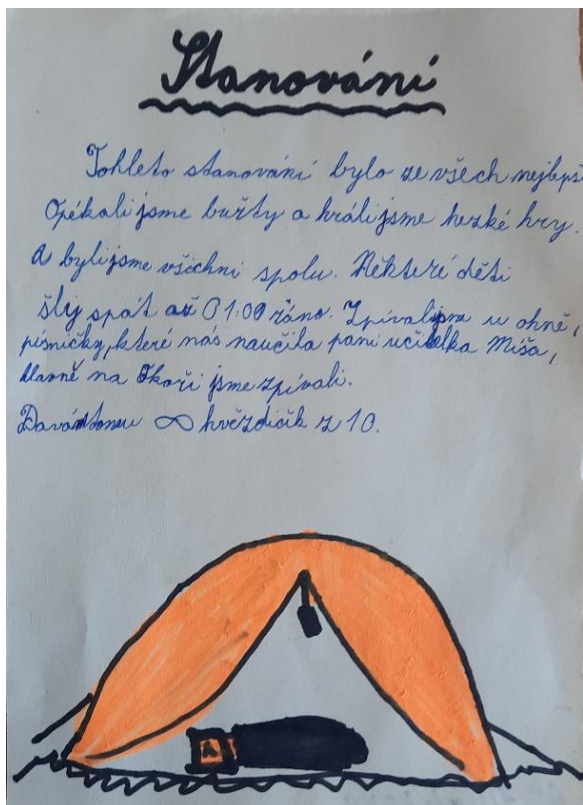 Stanování
Tohleto stanování bylo ze všech nejlepš
Opékali jsme buřty a hráli jsme hezké hry.
A byli jsme všichni spolu. Některé děti
šly spát až 01:00 ráno. Zpívali jsme u ohně,
písničky, které nás naučila paní učitelka Míša,
hlavně na Okoři jsme zpívali.
Dávám tomu ∞ hvězdiček z 10.